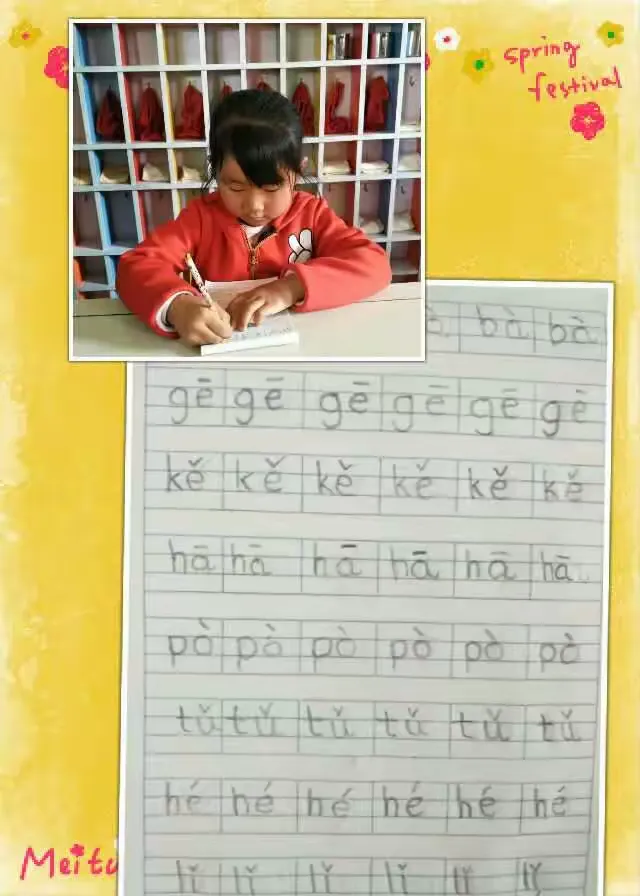 spring
festival
bà bà
gē gē gē gē gē gē
kě kě kě kě kě kě
hā hā hā hā hā hā
pò pò pò pò pò pò
tǔ tǔ tǔ tǔ tǔ tǔ
hé hé hé hé hé hé
lǐ lǐ lǐ lǐ lǐ lǐ
Meitu